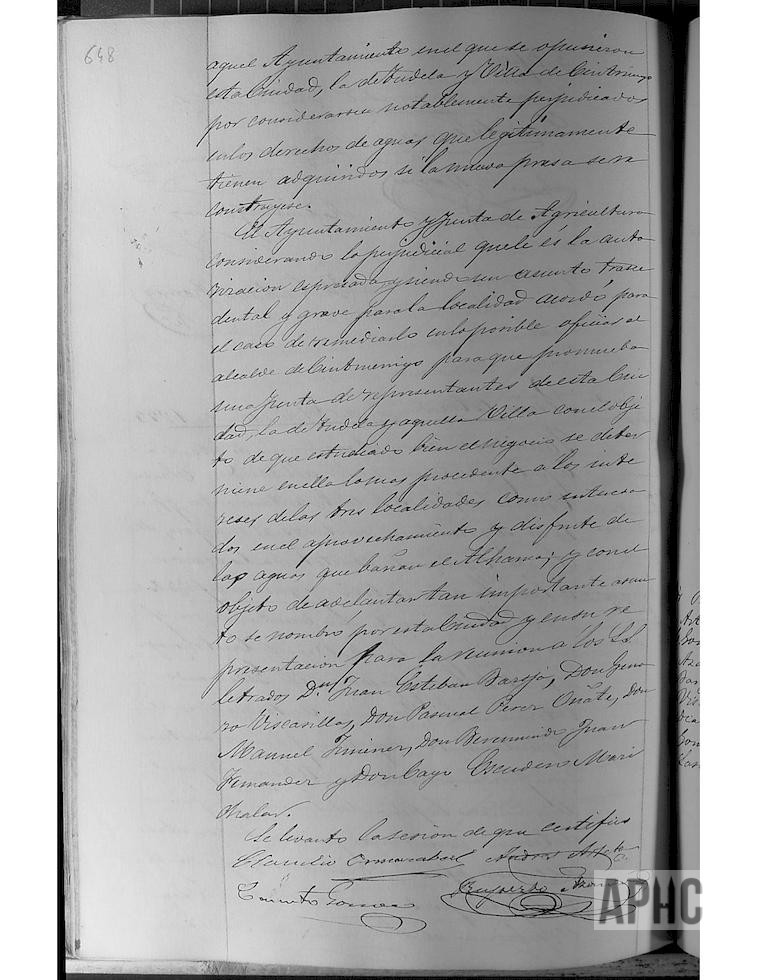 648
aquel Ayuntamiento en el que se opusieron
esta Ciudad, la de Tudela y Villa de Cintruenigo
por considerarse notablemente perjudicados
en los derechos de aguas que legitimamente
tienen adquiridos si la nueva presa se re
construyese.
El Ayuntamiento y Junta de Agricultura
considerando lo perjudicial que le és la auto
rizacion espresada y siendo un asunto trascen
dental y grave para la localidad acordó para
el caso de remediarlo en lo posible oficiar al
alcalde de Cintruenigo para que promueba
una Junta de representantes de esta Ciu
dad, la de Tudela y aquella Villa con el obje
to de que estudiado bien el negocio se deter
mine en ella lo mas procedente a los inte
reses de las tres localidades como interesa
dos en el aprovechamiento y disfrute de
las aguas que bañan el Alhama; y con el
objeto de adelantar tan importante asun
to se nombró por esta Ciudad y en su re
presentacion para la reunion a los SS.
letrados Dn Juan Esteban Baroja, Don Gena
ro Viscasillas, Don Pascual Perez Oñate, Don
Manuel Jimenez, Don Juan
Fernandez y Don Cayo Escudero Mari
chalar.
Se levantó la sesion de que certifico
Claudio Andrés